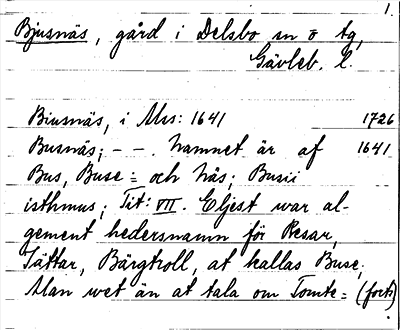 1.
Bjusnäs, gård i Delsbo sn o tg,
Gävleb. l.
Biusnäs, i Mss: 1641 1726
Busnäs; – –. Namnet är af 1641
Bus, Buse = och Näs; Busii
isthmus; Tit: VII. Eljest war al-
gement hedersnamn för Resar,
Jättar, Bärgtroll, at kallas Buse;
Man wet än at tala om Tomte= (forts)